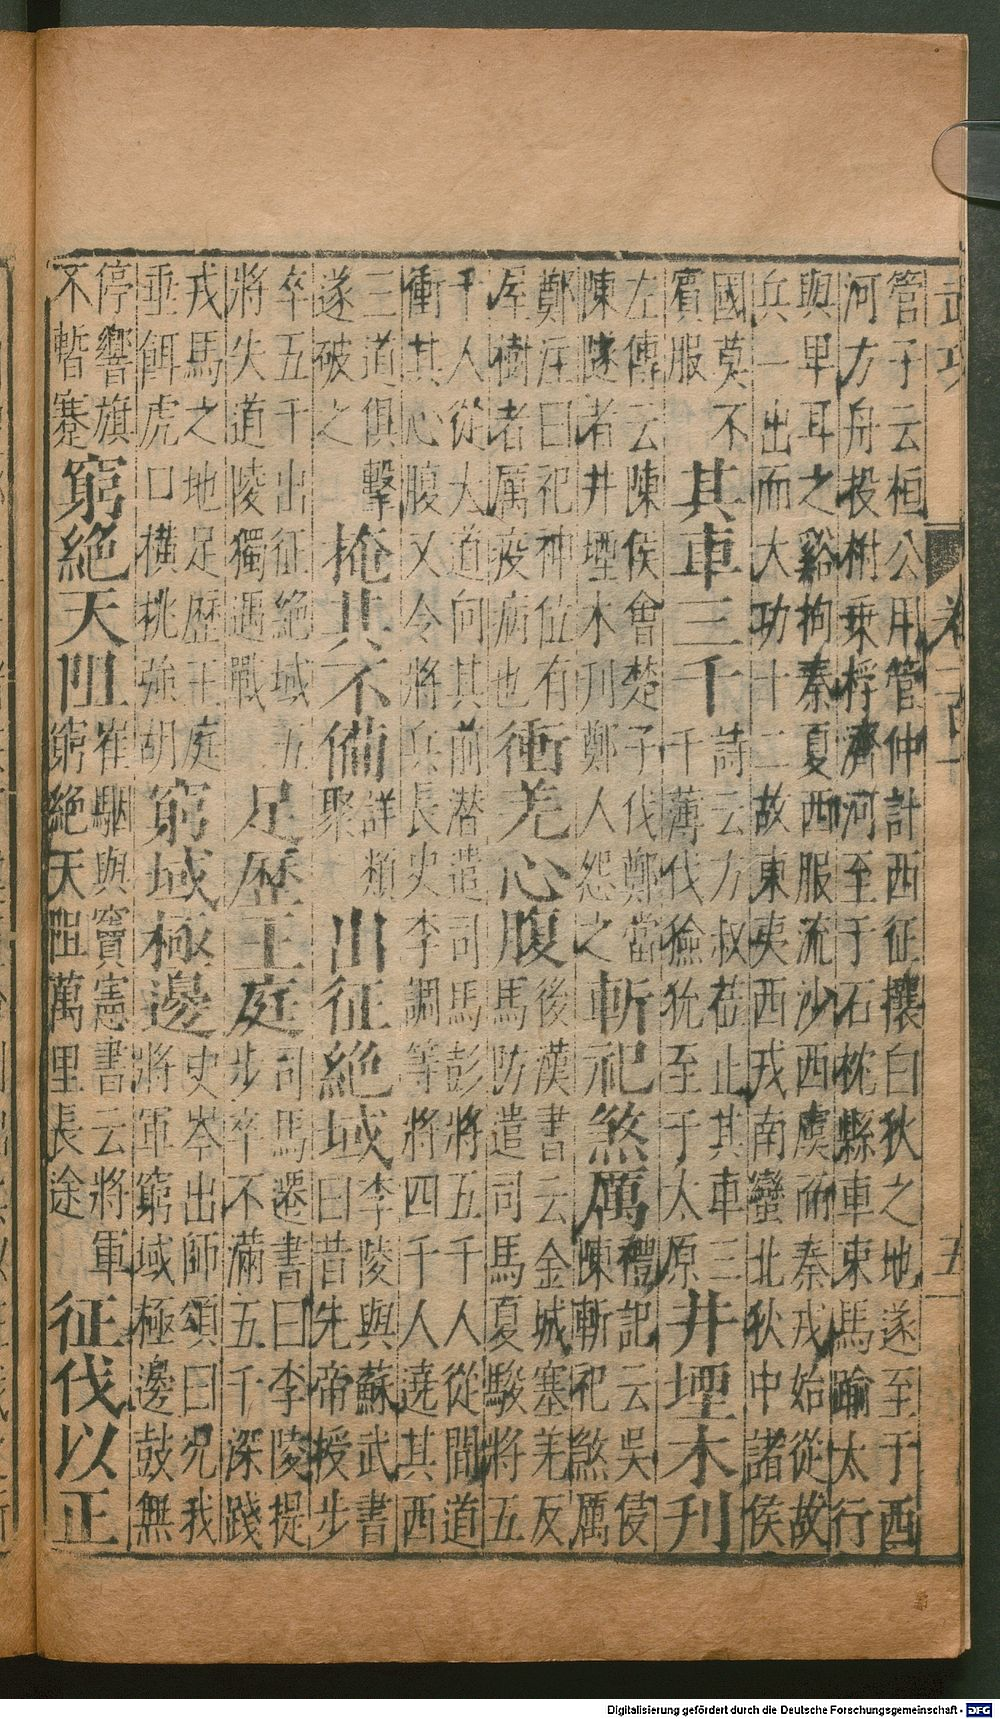 武功
五
管子云桓公用管仲計西征攘白狄之地遂至于西
河方舟投柎乘桴濟河至于石枕縣車束馬踰太行
與卑耳之谿拘秦夏西服流沙西虞而秦戎始從故
兵一出而大功十二故東夷西戎南蠻北狄中諸侯
國莫不
賓服
其車三千
詩云方叔莅止其車三
千薄伐獫狁至于太原
井堙木刊
左傳云陳侯會楚子伐鄭當
陳隧者井堙木刊鄭人怨之
斬祀煞厲
禮記云吳侵
陳斬祀煞厲
鄭注曰祀神位有
屋樹者厲疫病也
衝羌心腹
後漢書云金城塞羌反
馬防遣司馬夏駿將五
千人從大道向其前潜遣司馬彭將五千人從間道
衝其心腹又令將兵長史李調等將四千人遶其西
三道俱擊
遂破之
掩其不備
詳類
聚
出征絕域
李陵與蘇武書
曰昔先帝授步
卒五千出征絕域五
將失道陵獨遇戰
足歷王庭
司馬遷書曰李陵提
步卒不滿五千深踐
戎馬之地足歷王庭
垂餌虎口橫挑強胡
窮域極邊
史岑出師頌曰况我
將軍窮域極邊鼓無
停響旗
不暫褰
窮絕天阻
崔駰與竇憲書云將軍
窮絕天阻萬里長途
征伐以正
Digitalisierung gefördert durch die Deutsche Forschungsgemeinschaft - DFG